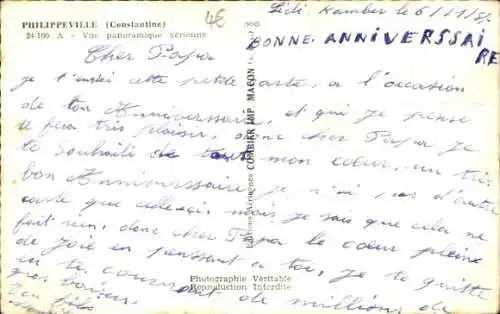 PHILIPPEVILLE (Constantine)
24-100 A - Vue panoramique aérienne
Sidi Kamber le 6/11/5
BONNE ANNIVERSSAIRE
Cher Papa
je t'envoi cette petite carte, a l'occasion
de ton Anniverssaire, et qui je pense
te fera très plaisir, donc cher Papa je
te souhaite de tout mon cœur, un très
bon Anniverssaire je n'ai pas d'autre
carte que celle çi, mais je sais que cela ne
fait rien, donc cher Papa le cœur pleine
de joie en pensant a toi, je te quitte
en te couvrant de millions de
gros baisers.
Editions Aériennes COMBIER IMP. MACON
Photographie Véritable
Reproduction Interdite